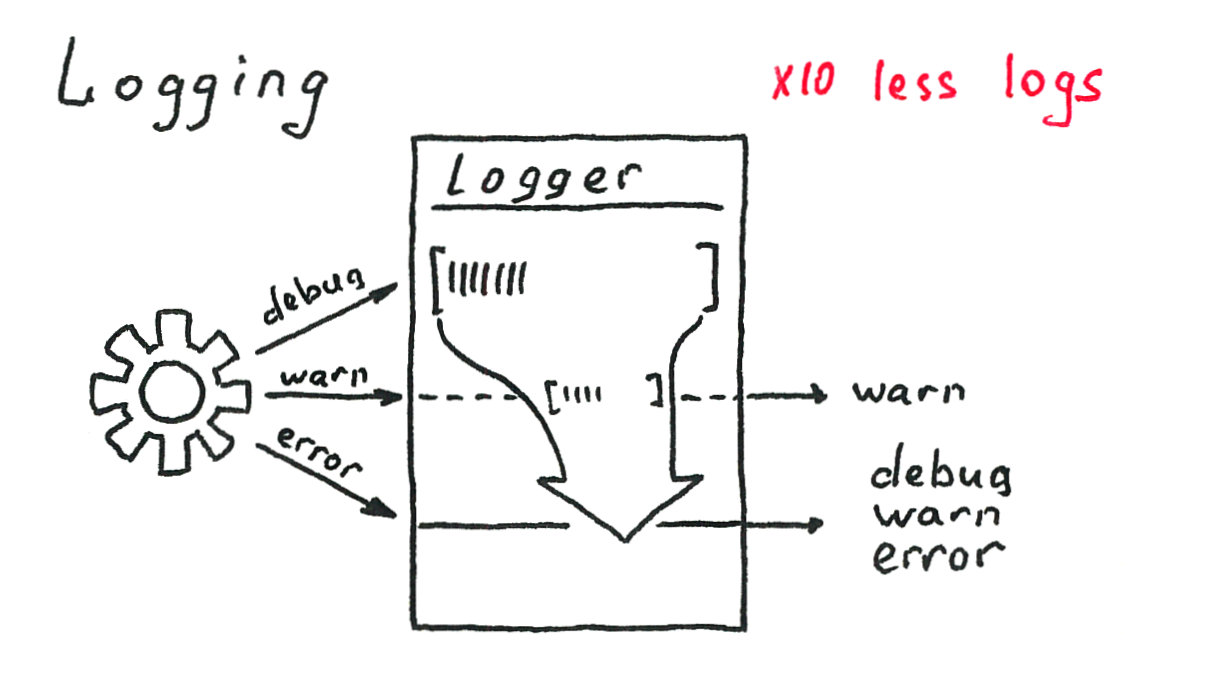 Logging
x10 less logs
Logger
debug
warn
error
warn
debug
warn
error